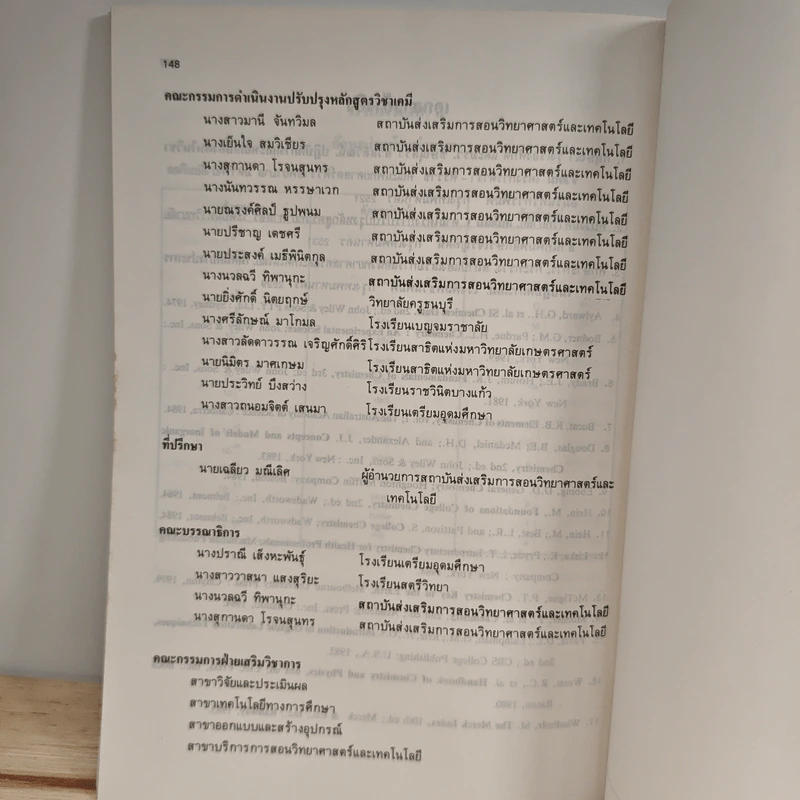 148
คณะกรรมการดำเนินงานปรับปรุงหลักสูตรวิชาเคมี
นางสาวมานี จันทวิมล สถาบันส่งเสริมการสอนวิทยาศาสตร์และเทคโนโลยี
นางเย็นใจ สมวิเชียร สถาบันส่งเสริมการสอนวิทยาศาสตร์และเทคโนโลยี
นางสุกานดา โรจนสุนทร สถาบันส่งเสริมการสอนวิทยาศาสตร์และเทคโนโลยี
นางนันทวรรณ หรรษาเวก สถาบันส่งเสริมการสอนวิทยาศาสตร์และเทคโนโลยี
นายณรงค์ศิลป์ ธูปพนม สถาบันส่งเสริมการสอนวิทยาศาสตร์และเทคโนโลยี
นายปรีชาญ เดชศรี สถาบันส่งเสริมการสอนวิทยาศาสตร์และเทคโนโลยี
นายประสงค์ เมธีพินิตกุล สถาบันส่งเสริมการสอนวิทยาศาสตร์และเทคโนโลยี
นางนวลฉวี ทิพานุกะ สถาบันส่งเสริมการสอนวิทยาศาสตร์และเทคโนโลยี
นายยิ่งศักดิ์ นิตยฤกษ์ วิทยาลัยครูธนบุรี
นางศรีลักษณ์ มาโกมล โรงเรียนเบญจมราชาลัย
นางสาวลัดดาวรรณ เจริญศักดิ์ศิริ โรงเรียนสาธิตแห่งมหาวิทยาลัยเกษตรศาสตร์
นายนิมิตร มาศเกษม โรงเรียนสาธิตแห่งมหาวิทยาลัยเกษตรศาสตร์
นายประวิทย์ บึงสว่าง โรงเรียนราชวินิตบางแก้ว
นางสาวถนอมจิตต์ เสนมา โรงเรียนเตรียมอุดมศึกษา
ที่ปรึกษา
นายเฉลียว มณีเลิศ ผู้อำนวยการสถาบันส่งเสริมการสอนวิทยาศาสตร์และ
เทคโนโลยี
คณะบรรณาธิการ
นางปราณี เส็งหะพันธุ์ โรงเรียนเตรียมอุดมศึกษา
นางสาววาสนา แสงสุริยะ โรงเรียนสตรีวิทยา
นางนวลฉวี ทิพานุกะ สถาบันส่งเสริมการสอนวิทยาศาสตร์และเทคโนโลยี
นางสุกานดา โรจนสุนทร สถาบันส่งเสริมการสอนวิทยาศาสตร์และเทคโนโลยี
คณะกรรมการฝ่ายเสริมวิชาการ
สาขาวิจัยและประเมินผล
สาขาเทคโนโลยีทางการศึกษา
สาขาออกแบบและสร้างอุปกรณ์
สาขาบริการการสอนวิทยาศาสตร์และเทคโนโลยี